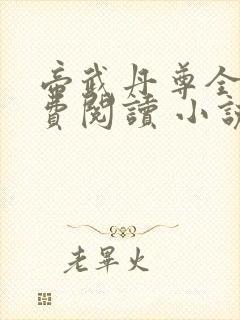 帝武丹尊全
費閱讀 小說
老畢火